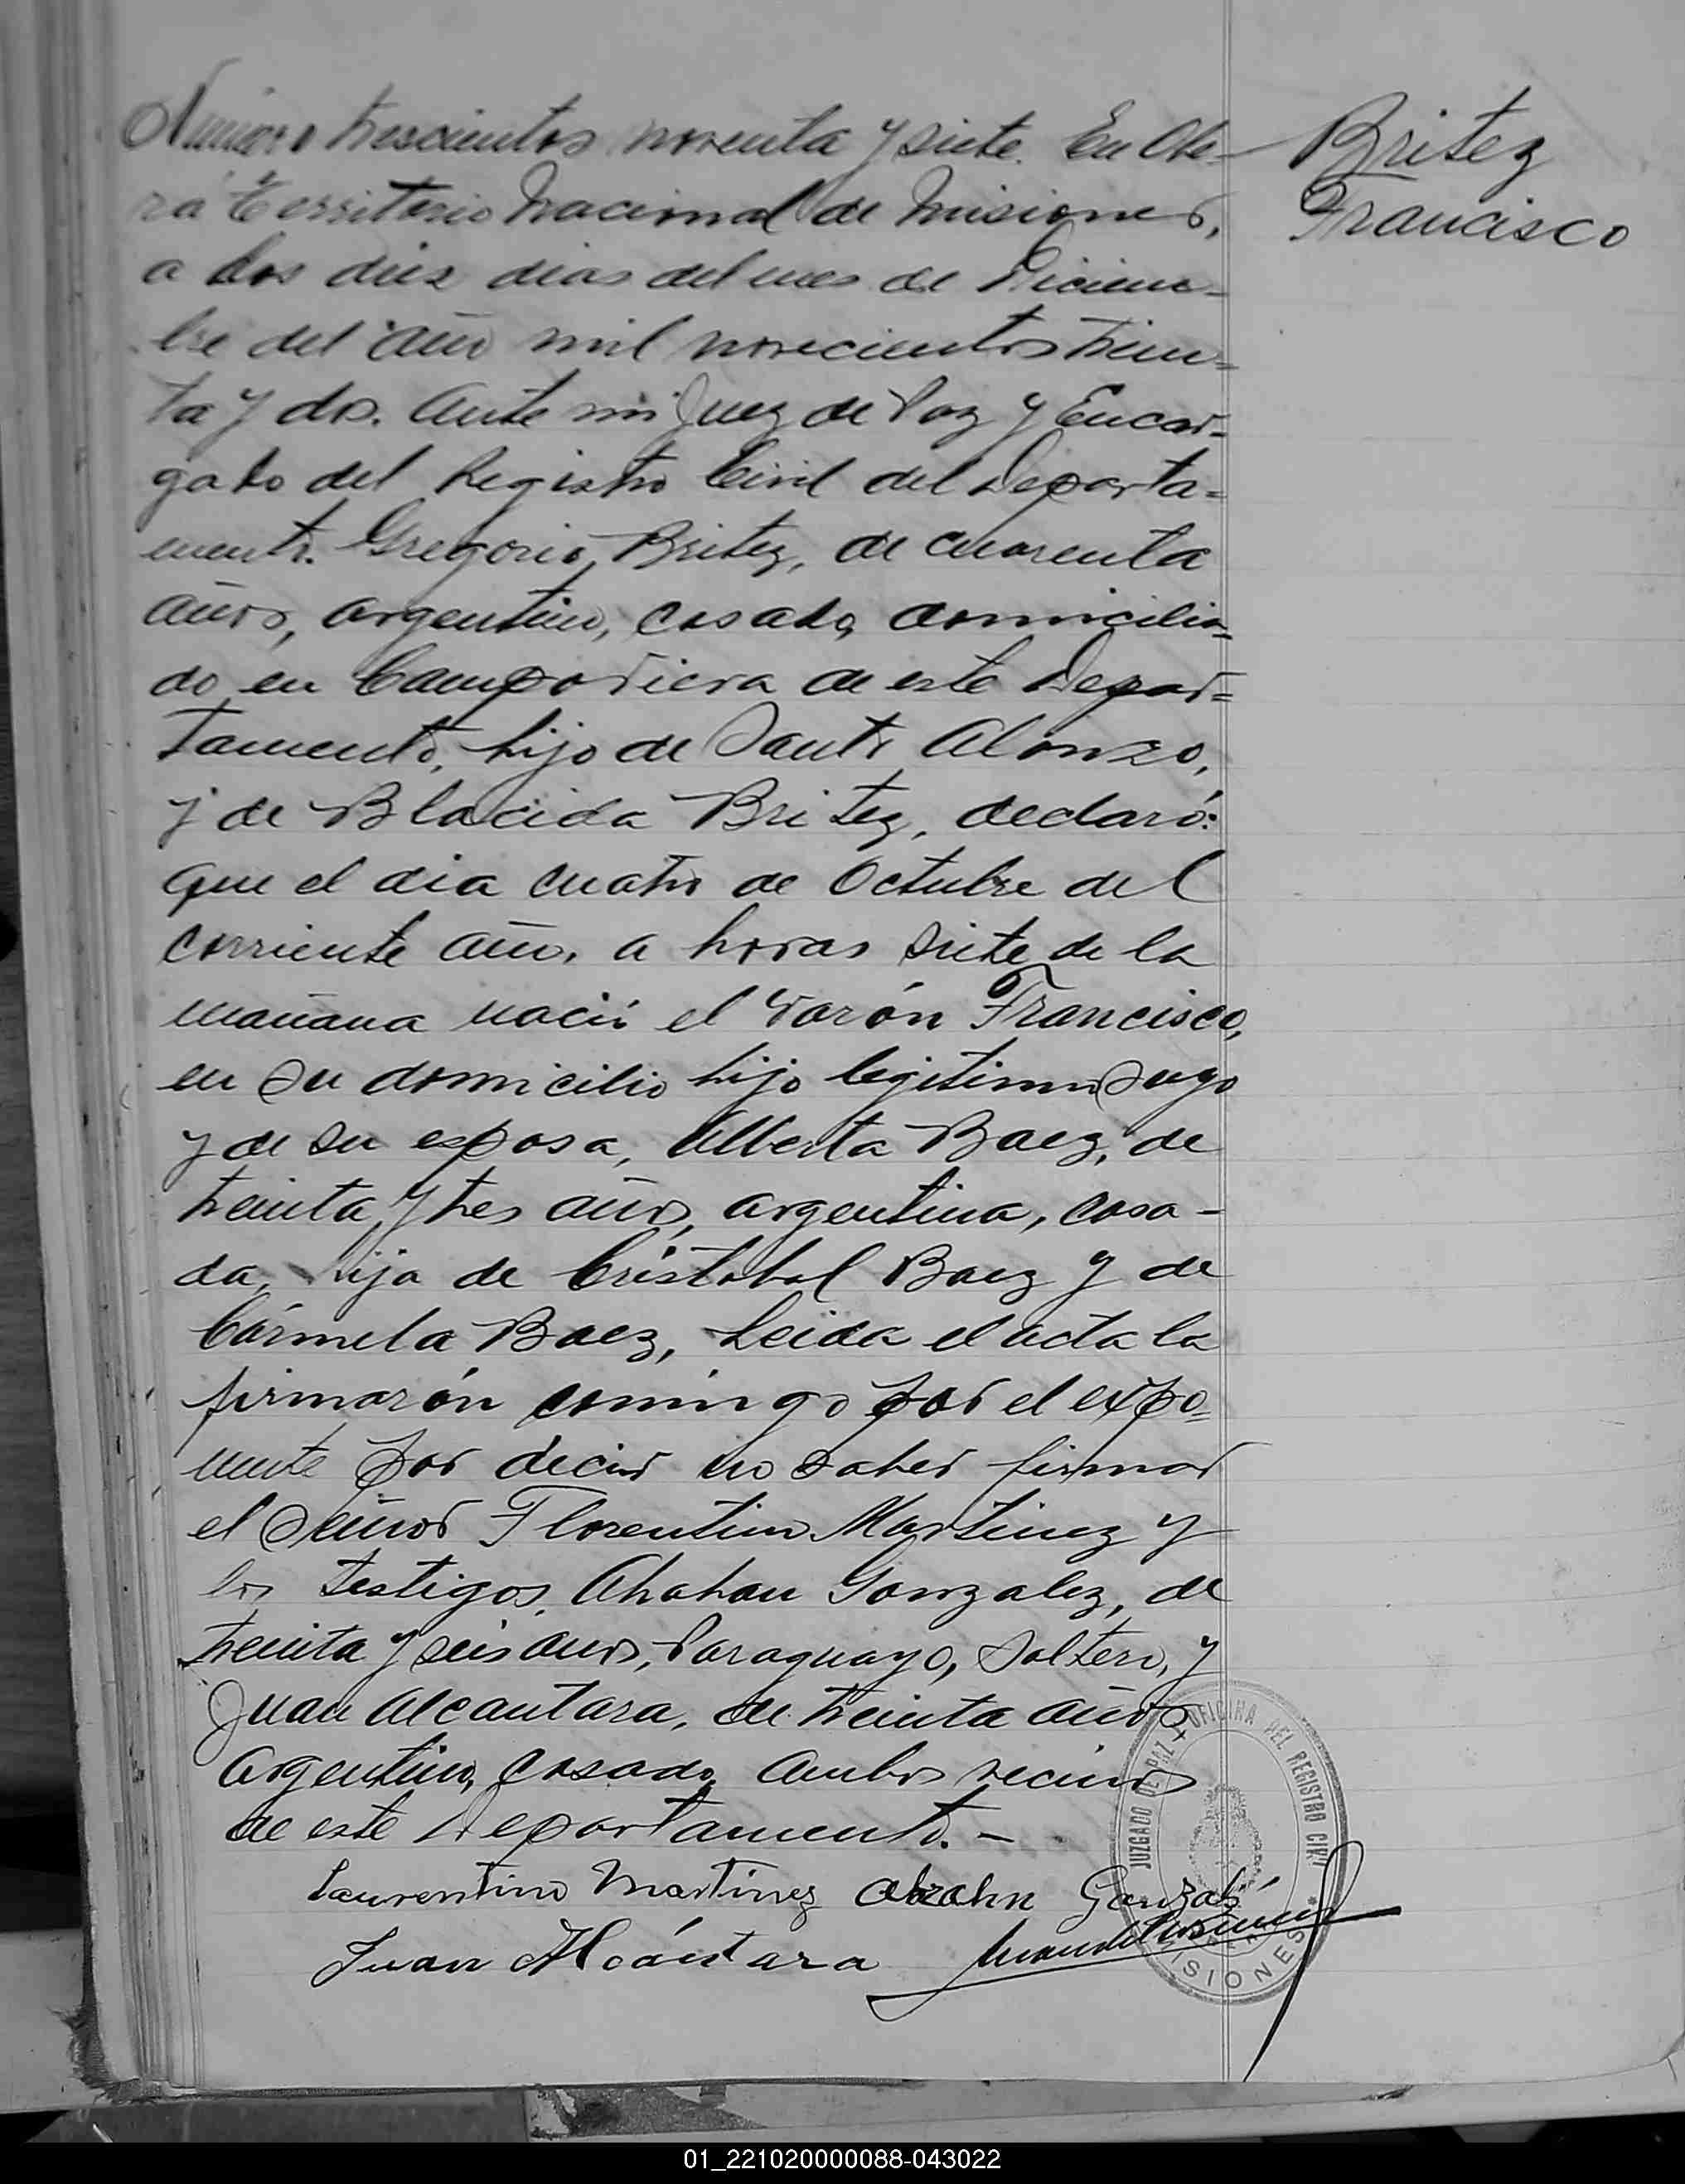 Número trescientos noventa y siete. En Obe-
rá Territorio Nacional de Misiones,
a los diez dias del mes de Diciem-
bre del año mil novecientos trein-
ta y dos. Ante mi Juez de Paz y Encar-
gado del Registro Civil del Departa-
mento. Gregorio Britez, de cuarenta
años, argentino, casado, domicilia-
do en Campo Viera de este Depar-
tamento, hijo de Santo Alonzo,
y de Blacida Britez, declaró:
que el dia cuatro de Octubre del
corriente año, a horas siete de la
mañana nació el varón Francisco,
en su domicilio hijo legitimo suyo
y de su esposa, Alberta Baez, de
treinta y tres años, argentina, casa-
da, hija de Cristobal Baez y de
Cármela Baez, Leida el acta la
firmarón comingo por el expo-
nente por decir no saber firmar
el Señor Florentino Martinez y
los testigos, Ahahan Gonzalez, de
treinta y seis años, Paraguayo, Soltero, y
Juan Alcantara, de treinta años
Argentino, casado, ambos vecinos
de este Departamento.-
Laurentino Martinez Gonzales
Juan Alcántara
Britez
Francisco
JUZGADO DE PAZ Y OFICINA DEL REGISTRO CIVIL
MISIONES
01_221020000088-043022